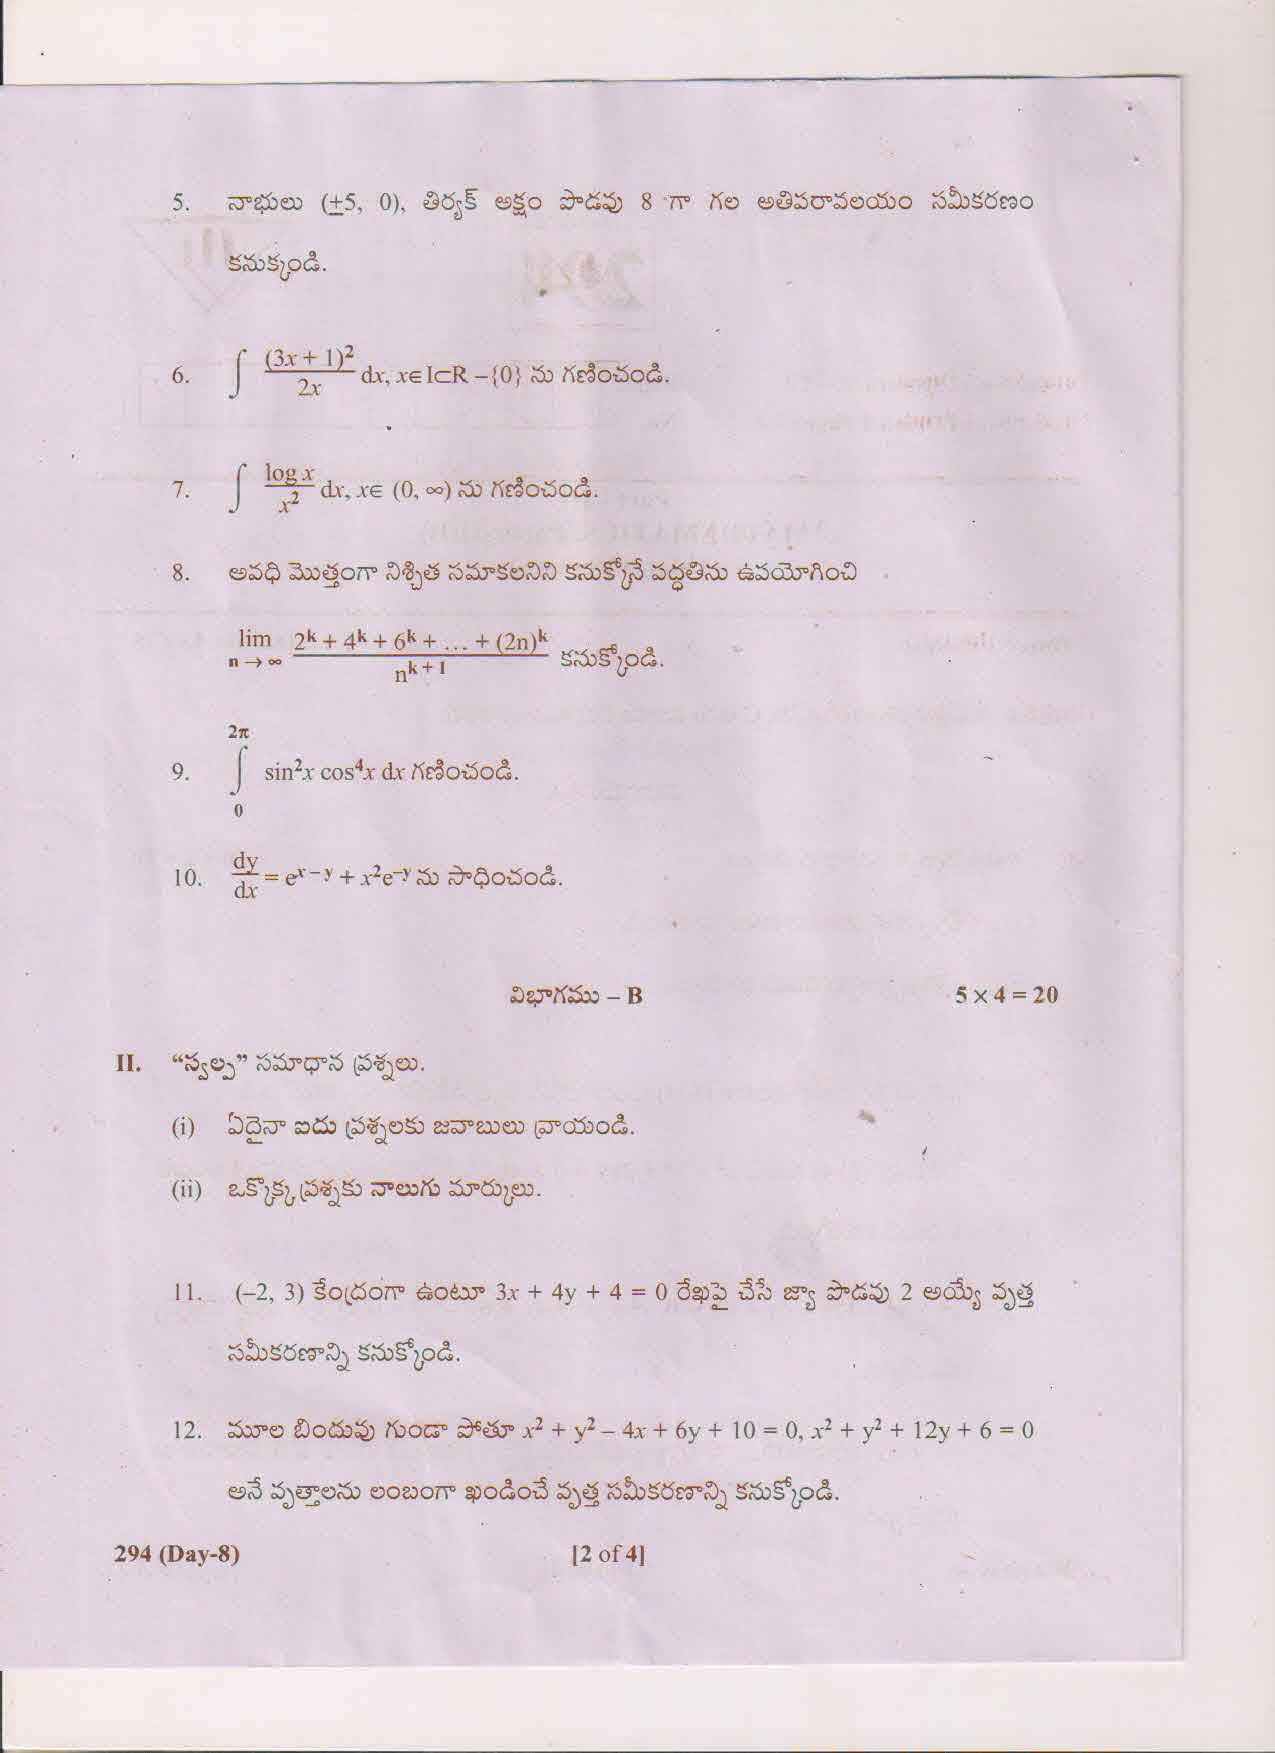 5. నాభులు (±5, 0), తిర్యక్ అక్షం పొడవు 8 గా గల అతిపరావలయం సమీకరణం
కనుక్కండి.
6. ∫ (3x + 1)² / 2x dx, x∈I⊂R –{0} ను గణించండి.
7. ∫ log x / x² dx, x∈ (0, ∞) ను గణించండి.
8. అవధి మొత్తంగా నిశ్చిత సమాకలనిని కనుక్కోనే పద్ధతిను ఉపయోగించి
lim n → ∞ 2ᵏ + 4ᵏ + 6ᵏ + ... + (2n)ᵏ / nᵏ⁺¹ కనుక్కోండి.
9. ∫₀^2π sin²x cos⁴x dx గణించండి.
10. dy/dx = eˣ⁻ʸ + x²e⁻ʸ ను సాధించండి.
విభాగము – B 5 × 4 = 20
II. “స్వల్ప” సమాధాన ప్రశ్నలు.
(i) ఏదైనా ఐదు ప్రశ్నలకు జవాబులు వ్రాయండి.
(ii) ఒక్కొక్క ప్రశ్నకు నాలుగు మార్కులు.
11. (–2, 3) కేంద్రంగా ఉంటూ 3x + 4y + 4 = 0 రేఖపై చేసే జ్యా పొడవు 2 అయ్యే వృత్త
సమీకరణాన్ని కనుక్కోండి.
12. మూల బిందువు గుండా పోతూ x² + y² – 4x + 6y + 10 = 0, x² + y² + 12y + 6 = 0
అనే వృత్తాలను లంబంగా ఖండించే వృత్త సమీకరణాన్ని కనుక్కోండి.
294 (Day-8) [2 of 4]